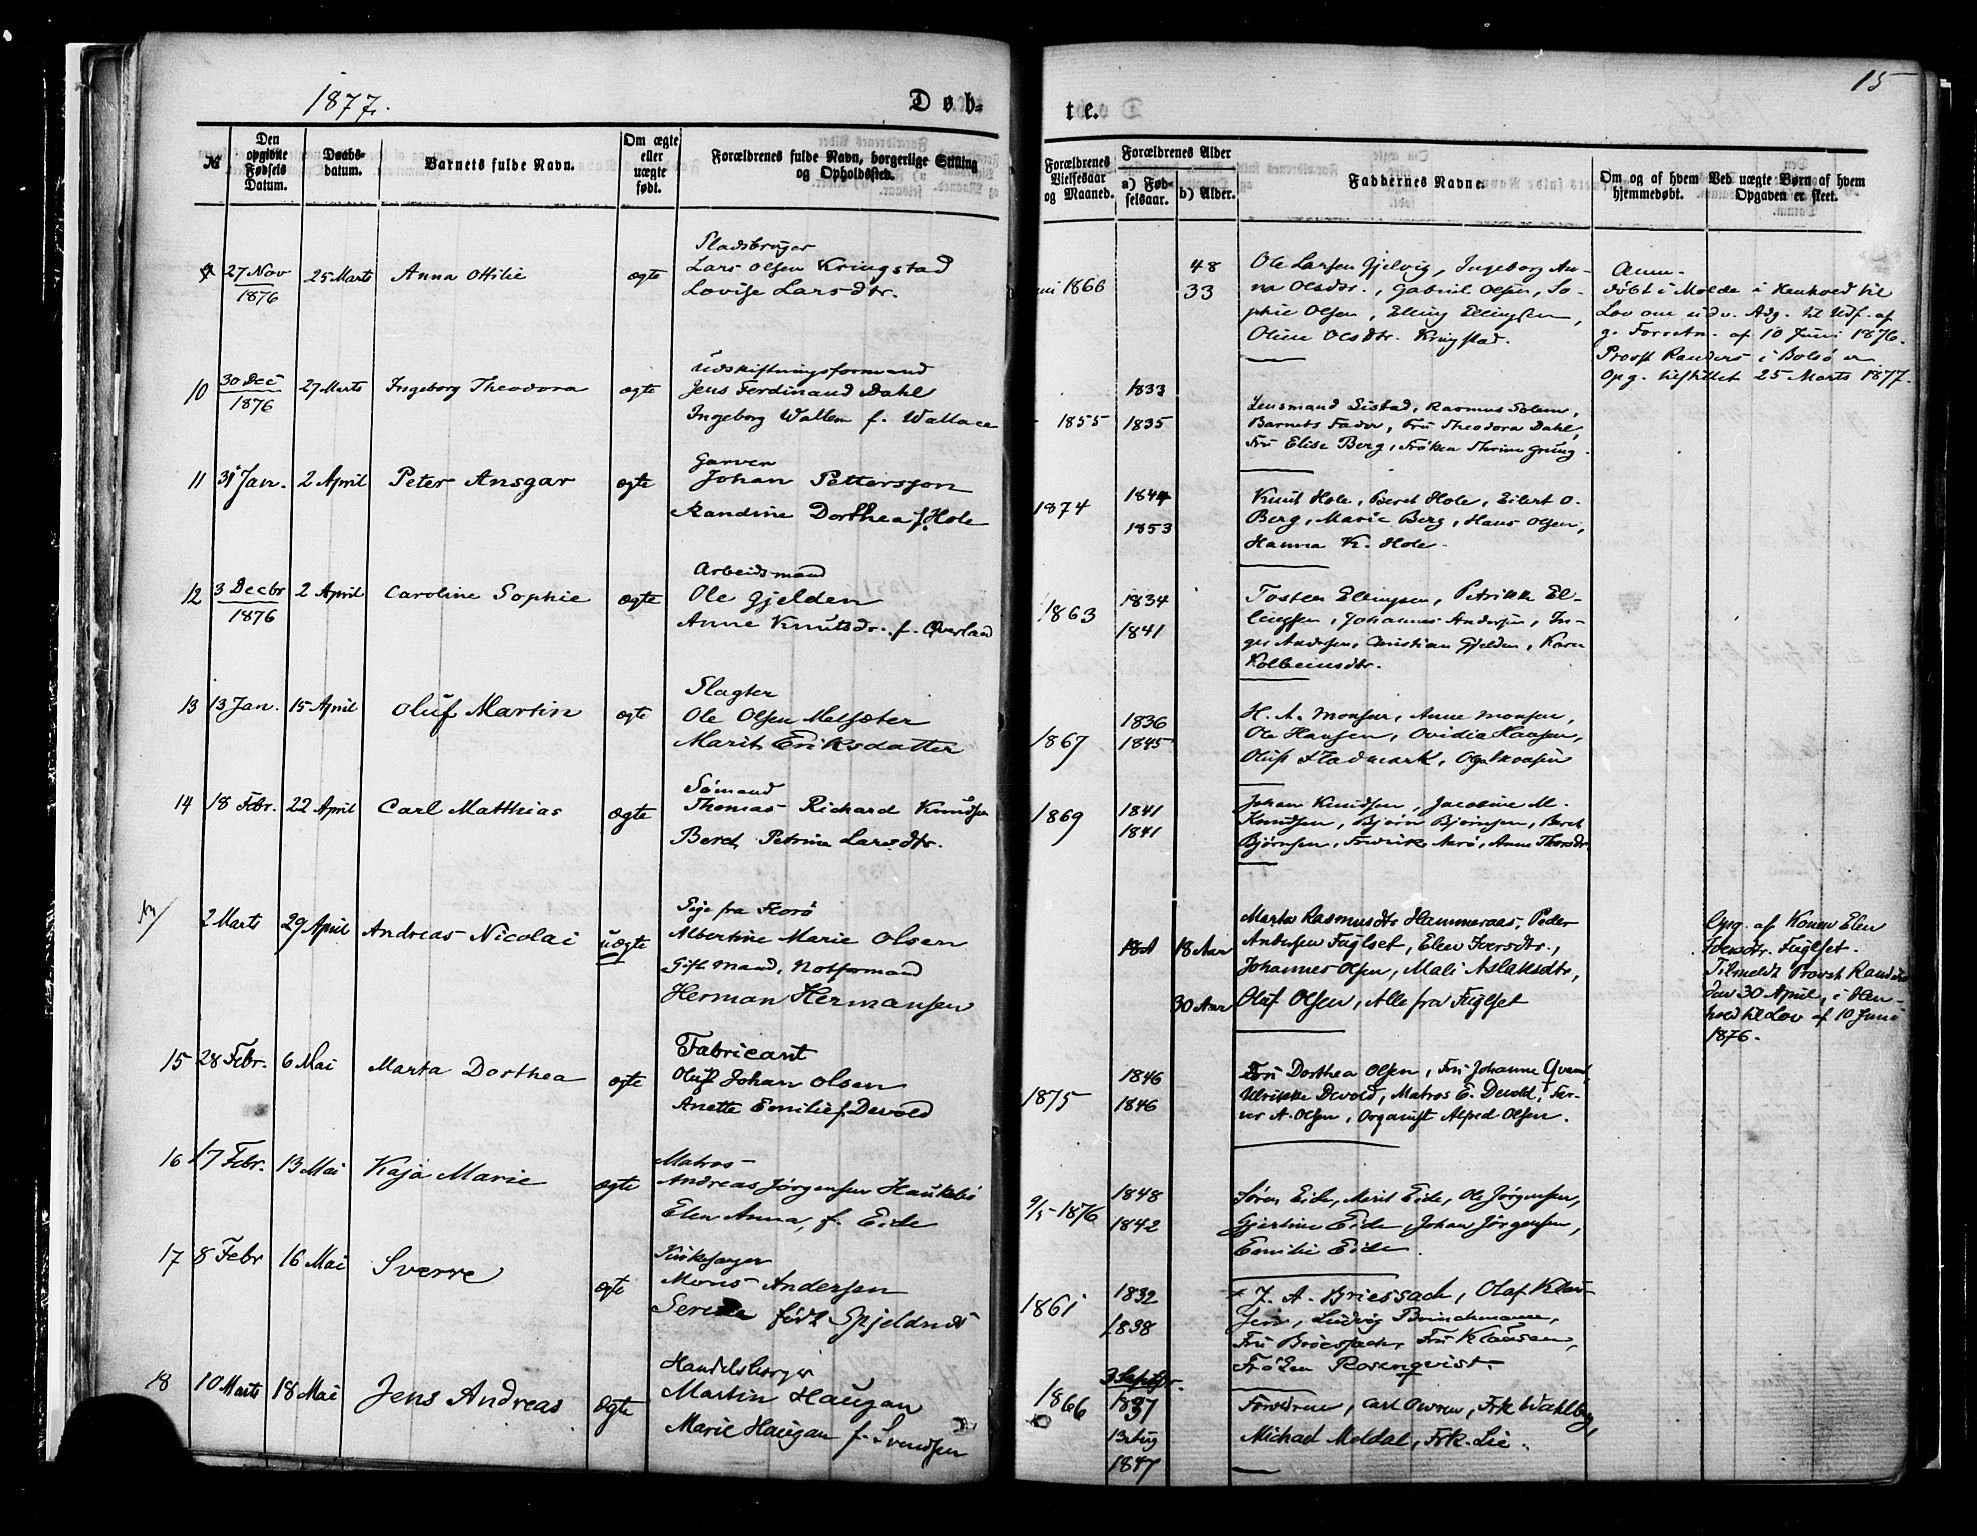 1877.
Døb=
te.
15
№
Den opgivne Fødsels Datum.
Daabs-datum.
Barnets fulde Navn.
Om ægte eller uægte født.
Forældrenes fulde Navn, borgerlige Stilling og Opholdssted.
Forældrenes Vielsesaar og Maaned.
Forældrenes Alder
a) Fød-selsaar.
b) Alder.
Faddernes Navne.
Om og af hvem hjemmedøbt.
Ved uægte Børn af hvem Opgaven er skeet.
9 27 Nov 1876 25 Marts Anna Ottilie ægte
Pladsbruger
Lars Olsen Kringstad
Lovise Larsdtr.
1866 48 33
Ole Larsen Gjelvig, Ingeborg An-
na Olsdtr., Gabriel Olsen, So-
phie Olsen, Elling Ellingsen,
Oline Olsdtr. Kringstad.
Anm.
døbt i Molde i Henhold til
Lov om udv. Adg. til Udf. af
g. Forretn. af 10 Juni 1876.
Provst Randers i Bolsø er
Opg. tilstillet 25 Marts 1877.
10 30 Dec 1876 27 Marts Ingeborg Theodora ægte
Udskiftningsformand
Jens Ferdinand Dahl
Ingeborg Wallem f. Wallace
1855 1833 1835
Lensmand Listad, Rasmus Solem,
Barnets Fader, Fru Theodora Dahl,
Fru Elise Berg, Frøken Thrine Greug.
11 31 Jan. 2 April Peter Ansgar ægte
Garver
Johan Pettersson
Randine Dorthea f. Hole
1874 1844 1853
Knut Hole, Beret Hole, Eilert O.
Berg, Marie Berg, Hans Olsen,
Hanna K. Hole.
12 3 Decbr 1876 2 April Caroline Sophie ægte
Arbeidsmand
Ole Gjelden
Anne Knutsdr. f. Overland
1863 1834 1841
Tosten Ellingsen, Petrikke El-
lingsen, Johannes Andersen, In-
ger Andersen, Christian Gjelden, Karen
Kolbeinsdtr.
13 13 Jan. 15 April Oluf Martin ægte
Slagter
Ole Olsen Melsæter
Marit Eriksdatter
1867 1836 1845
H. A. Monsen, Anne Monsen,
Ole Hansen, Ovidia Hansen,
Oluf Fladmark,
14 18 Febr. 22 April Carl Matthias ægte
Sømand
Thomas Richard Knudsen
Beret Petrine Larsdtr.
1869 1841 1841
Johan Knudsen, Jacobine M.
Knudsen, Bjørn Bjørnsen, Beret
Bjørnsen, Fredrik Aarø, Anne Thorsdtr
2 Marts 29 April Andreas Nicolai uægte
Pige fra Florø
Albertine Marie Olsen
Gift Mand, Notformand
Herman Hermansen
18 Aar
30 Aar
Marta Rasmusdtr Hammeraas, Peder
Andersen Fuglset, Elen Iversdtr.,
Johannes Olsen, Mali Aslaksdtr,
Oluf Olsen, Alle fra Fuglset
Opg. af Konen Elen
Iversdtr. Fuglset.
Tilmeldt Provst Randers
den 30 April, i Hen-
hold til Lov af 10 Juni
1876.
15 28 Febr. 6 Mai Marta Dorthea ægte
Fabricant
Oluf Johan Olsen
Anette Emilie f. Devold
1875 1846 1846
Fru Dorthea Olsen, Fru Johanne Qvam,
Ulrikke Devold, Matros E. Devold, Far-
ver A. Olsen, Organist Alfred Olsen.
16 17 Febr. 13 Mai Kaja Marie ægte
Matros
Andreas Jørgensen Haukebø
Elen Anna, f. Eide
9/5-1876 1848 1842
Søren Eide, Merit Eide, Ole Jørgensen,
Gjertine Eide, Johan Jørgensen,
Emilie Eide.
17 8 Febr 16 Mai Sverre ægte
Kirkesanger
Mons Andersen
Serine født Spjeldnæs
1861 1832 1838
J. A. Briessach, Olaf Klau-
sen, Ludvig Brinchmann,
Fru Briessach, Fru Klausen,
Frøken Rosenqvist.
18 10 Marts 18 Mai Jens Andreas ægte
Handelsborger
Martin Haugan
Marie Haugan f. Svendsen
1866 3 Septbr. 1837 13 Aug 1847
Forældrene, Carl Owren, Frk Wahlberg,
Michael Meldal, Frk. Lie.